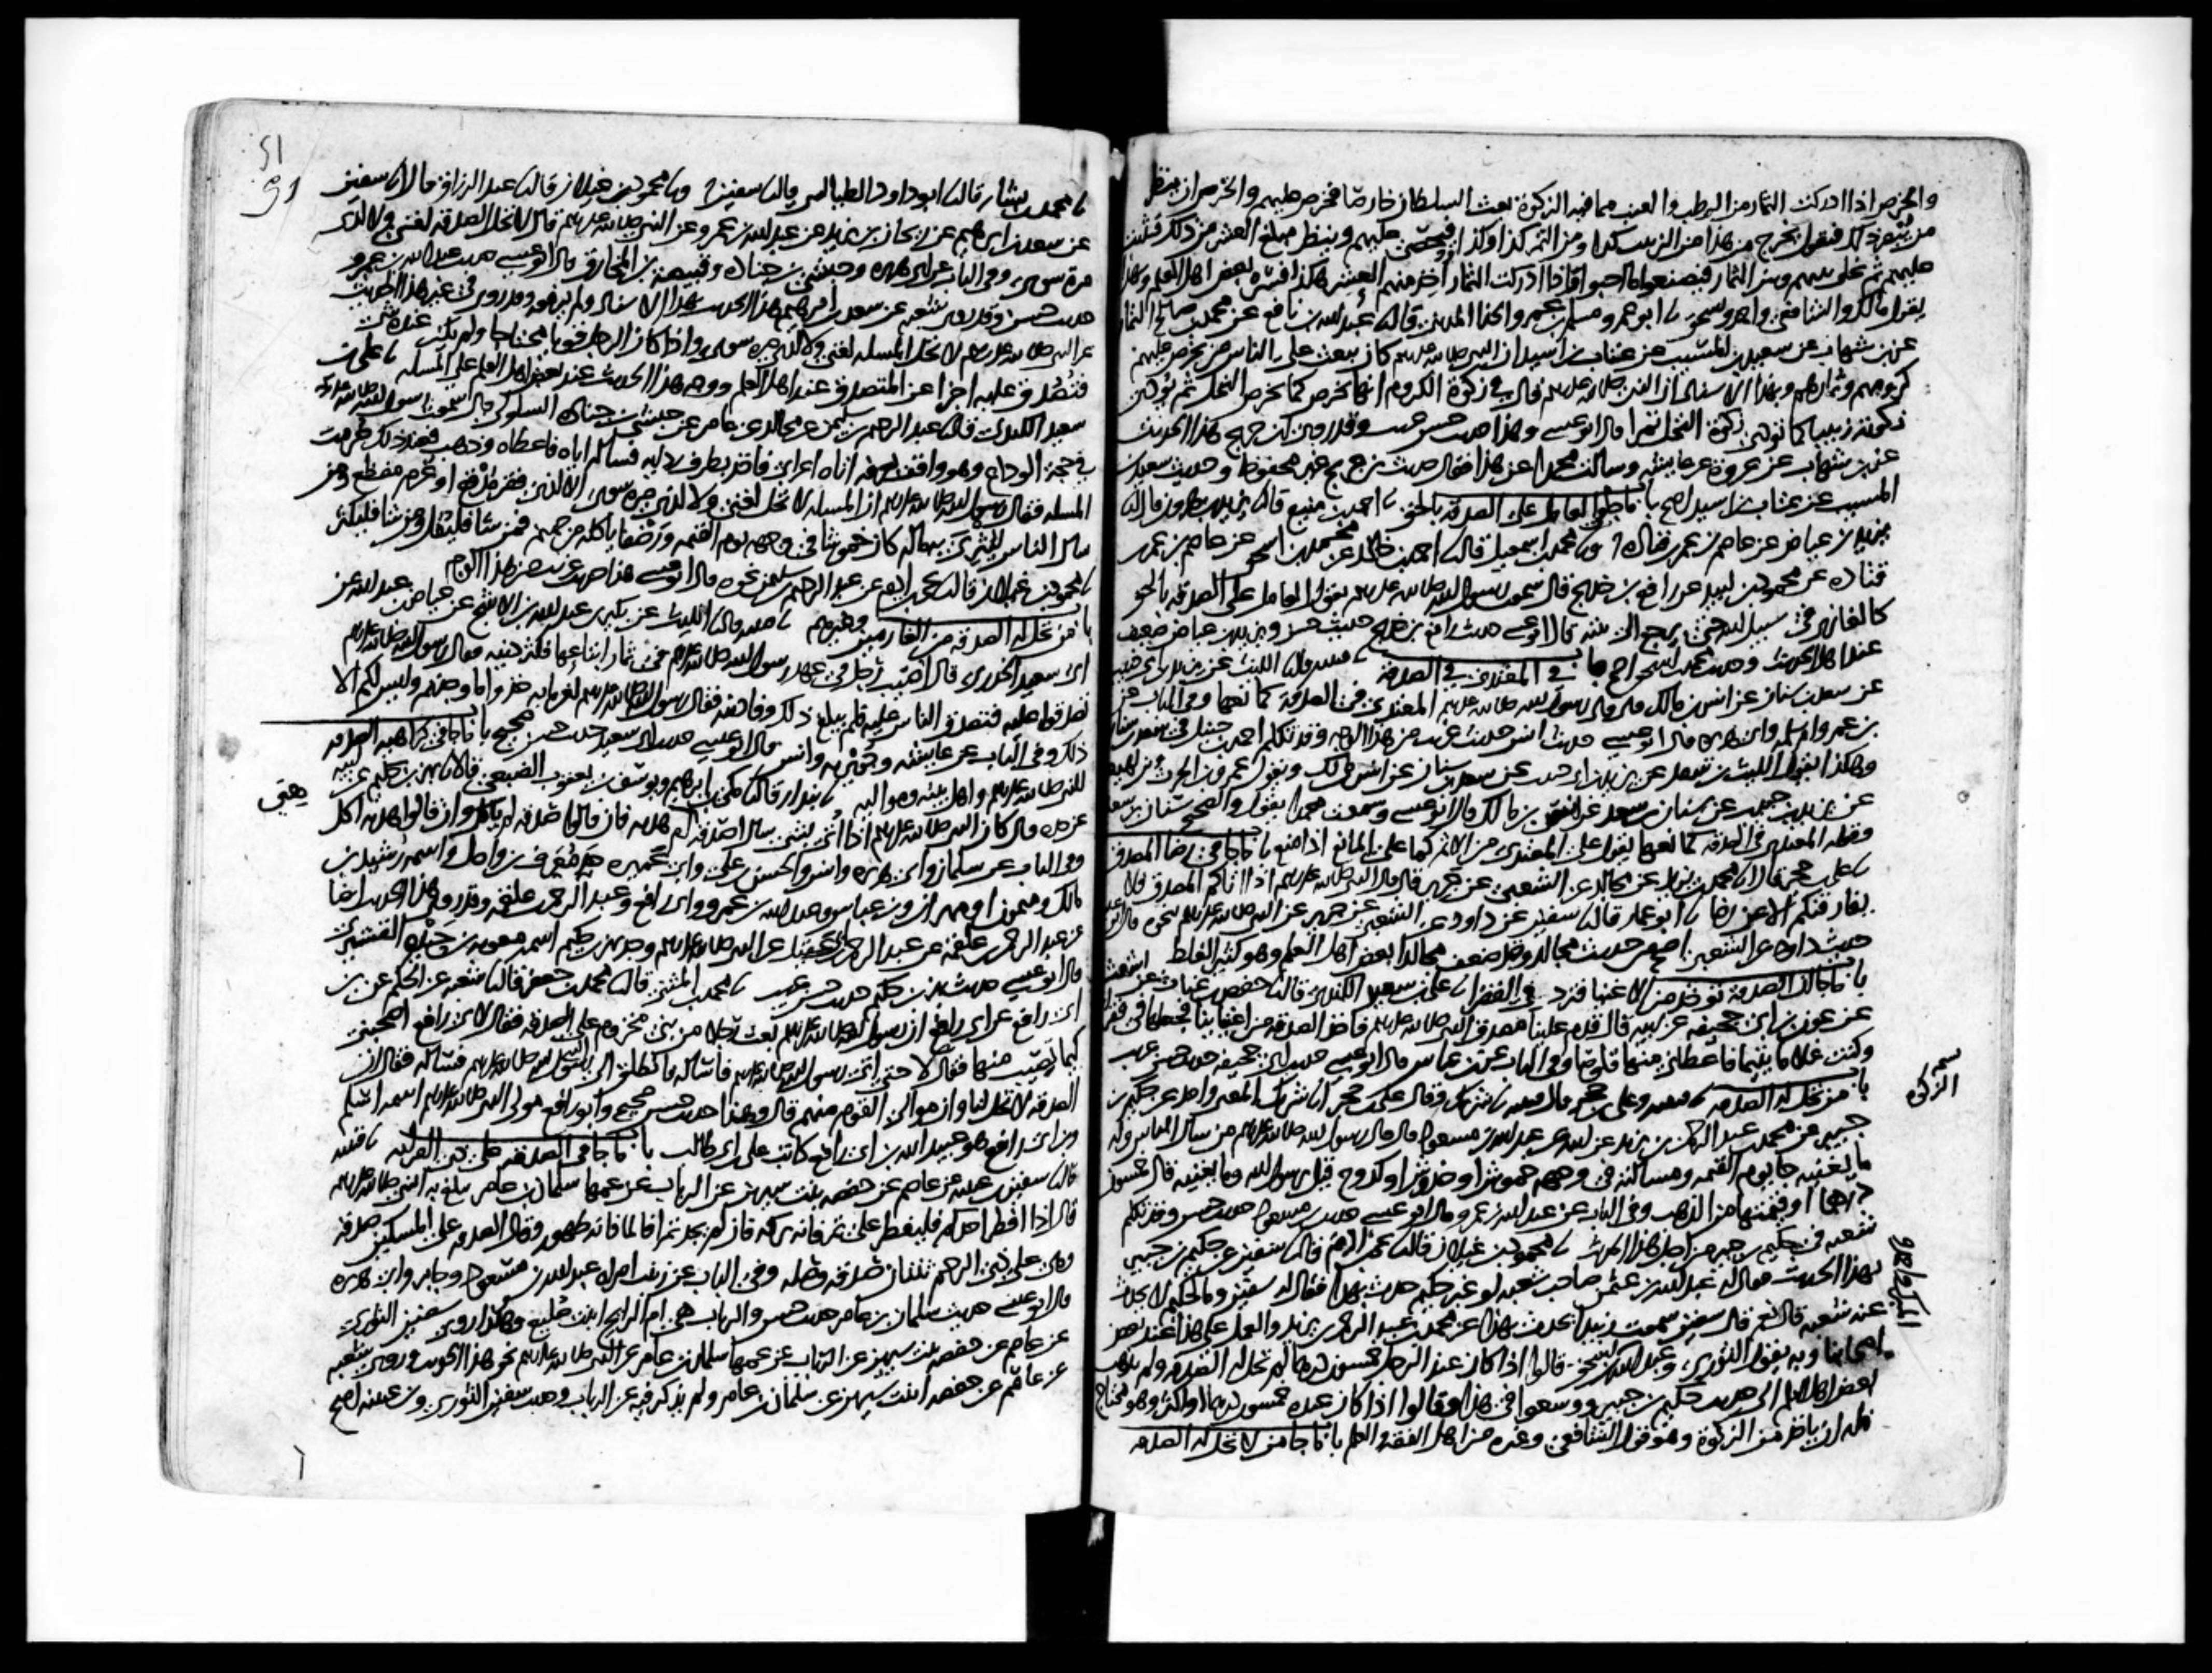 والخرص اذا ادركت الثمار من الرطب والعنب مما فيه الزكوة بعث السلطان خارصا فخرص عليهم والخرص ان ينظر
من يبصر ذلك فيقول يخرج من هذا من الزبيب كذا ومن التمر كذا وكذا فيحصى عليهم وينظر مبلغ العشر من ذلك فيثبت
عليهم ثم يخلى بينهم وبين الثمار فيصنعوا ما احبوا فاذا ادركت الثمار اخذ منهم العشر هكذا فسره بعض اهل العلم وبهذا
يقول مالك والشافعي واحمد واسحق ابو عمرو مسلم بن عمرو الحذا المديني قال عبد الله بن نافع عن محمد بن صالح التمار
عن بن شهاب عن سعيد بن المسيب عن عتاب بن اسيد ان النبي صلى الله عليه وسلم كان يبعث على الناس من يخرص عليهم
كرومهم وثمارهم وبهذا الاسناد ان النبي صلى الله عليه وسلم قال في زكوة الكروم انها تخرص كما يخرص النخل ثم تؤدى
زكوته زبيبا كما تؤدى زكوة النخل تمرا قال ابو عيسى هذا حديث حسن غريب وقد روى ابن جريج هذا الحديث
عن بن شهاب عن عروة عن عايشة وسالت محمدا عن هذا فقال حديث بن جريج غير محفوظ وحديث سعيد بن
المسيب عن عتاب بن اسيد اصح باب ما جا في العامل على الصدقة بالحق احمد بن منيع قال يزيد بن هرون قال
يزيد بن عياض عن عاصم بن عمر بن قتاده ومحمد بن اسمعيل قال احمد بن خالد عن محمد بن اسحق عن عاصم بن عمر بن
قتاده عن محمود بن لبيد عن رافع بن خديج قال سمعت رسول الله صلى الله عليه وسلم يقول العامل على الصدقة بالحق
كالغازي في سبيل الله حتى يرجع الى بيته قال ابو عيسى حديث رافع بن خديج حديث حسن ويزيد بن عياض ضعيف
عند اهل الحديث وحديث محمد بن اسحق اصح باب في المعتدي في الصدقة قتيبه قال الليث عن يزيد بن ابي حبيب
عن سعد بن سنان عن انس بن مالك قال قال رسول الله صلى الله عليه وسلم المعتدي في الصدقة كمانعها وفي الباب عن
بن عمر وام سلمه وابي هريره قال ابو عيسى حديث انس حديث غريب من هذا الوجه وقد تكلم احمد بن حنبل في سعد بن سنان
وهكذا يقول الليث بن سعد عن يزيد بن ابي حبيب عن سعد بن سنان عن انس بن مالك ويقول عمرو بن الحرث وبن لهيعه
عن يزيد بن حبيب عن سنان بن سعد عن انس بن مالك قال ابو عيسى وسمعت محمدا يقول والصحيح سنان بن سعد
وقوله المعتدي في الصدقه كمانعها يقول على المعتدي من الاثم كما على المانع اذا منع باب ما جا في رضا المصدق
علي بن حجر قال محمد بن يزيد عن مجالد عن الشعبي عن جرير قال قال النبي صلى الله عليه وسلم اذا اتاكم المصدق فلا
يفارقنكم الا عن رضا ابو عمار قال سفين عن داود عن الشعبي عن جرير عن النبي صلى الله عليه وسلم نحوه قال ابو عيسى
حديث داود عن الشعبي اصح من حديث مجالد وقد ضعف مجالدا بعض اهل العلم وهو كثير الغلط
باب ما جا ان الصدقة توخذ من الاغنيا فترد في الفقرا علي بن سعيد الكندي قال حفص بن غياث عن اشعث
عن عون بن ابي جحيفه عن ابيه قال قدم علينا مصدق النبي صلى الله عليه وسلم فاخذ الصدقة من اغنيائنا فجعلها في فقرائنا
وكنت غلاما يتيما فاعطاني منها قلوصا وفي الباب عن بن عباس قال ابو عيسى حديث ابي جحيفه حديث حسن غريب
باب من تحل له الصدقه قتيبه وعلي بن حجر قال قتيبه شريك وقال علي بن حجر انا شريك المعنى واحد عن حكيم بن
جبير عن محمد بن عبد الرحمن بن يزيد عن ابيه عن عبد الله بن مسعود قال قال رسول الله صلى الله عليه وسلم من سال الناس وله
ما يغنيه جا يوم القيمه ومسالته في وجهه خموش او خدوش او كدوح قيل يرسول الله وما يغنيه قال خمسون
درهما او قيمتها من الذهب وفي الباب عن عبد الله بن عمرو قال ابو عيسى حديث بن مسعود حديث حسن وقد تكلم
شعبه في حكيم بن جبير من اجل هذا الحديث محمود بن غيلان قال يحيى بن ادم قال سفين عن حكيم بن جبير
بهذا الحديث فقال له عبد الله بن عثمن صاحب شعبه لو غير حكيم حدث بهذا فقال له سفين وما لحكيم لا يحدث
عنه شعبه قال نعم قال سفين سمعت زبيدا يحدث بهذا عن محمد بن عبد الرحمن بن يزيد والعمل على هذا عند بعض
اصحابنا وبه يقول الثوري وعبد الله واسحق قالوا اذا كان عند الرجل خمسون درهما لم تحل له الصدقه ولم يذهب
بعض اهل العلم الى حديث حكيم بن جبير ووسعوا في هذا وقالوا اذا كان عنده خمسون درهما او اكثر وهو محتاج
فله ان ياخذ من الزكوة وهو قول الشافعي وغيره من اهل الفقه والعلم باب ما جا من لا تحل له الصدقه
محمد بن بشار قال ابو داود الطيالسي قال سفين ومحمود بن غيلان قال عبد الرزاق قال انا سفين
عن سعد بن ابراهيم عن ريحان بن يزيد عن عبد الله بن عمرو عن النبي صلى الله عليه وسلم قال لا تحل الصدقه لغني ولا لذي
مرة سوي وفي الباب عن ابي هريره وحبشي بن جناده وقبيصة بن المخارق قال ابو عيسى حديث عبد الله بن عمرو
حديث حسن وقد روى شعبه عن سعد بن ابراهيم هذا الحديث بهذا الاسناد ولم يرفعه وقد روي في غير هذا الحديث
عن النبي صلى الله عليه وسلم لا تحل المسله لغني ولا لذي مره سوي واذا كان الرجل قويا محتاجا ولم يكن عنده شي
فتصدق عليه اجزا عن المتصدق عند اهل العلم ووجه هذا الحديث عند بعض اهل العلم على المسله علي بن
سعيد الكندي قال عبد الرحيم بن سليمن عن مجالد عن عامر عن حبشي بن جناده السلولي قال سمعت رسول الله صلى الله عليه وسلم
في حجة الوداع وهو واقف بعرفه اتاه اعرابي فاخذ بطرف ردايه فساله اياه فاعطاه وذهب فعند ذلك حرمت
المسله فقال رسول الله صلى الله عليه وسلم ان المسله لا تحل لغني ولا لذي مره سوي الا لذي فقر مدقع او غرم مفظع ومن
سال الناس ليثري به ماله كان خموشا في وجهه يوم القيمه ورضفا ياكله من جهنم فمن شا فليقل ومن شا فليكثر
محمود بن غيلان قال يحيى بن ادم عن عبد الرحيم بن سليمن نحوه قال ابو عيسى هذا حديث غريب من هذا الوجه
باب من تحل له الصدقه من الغارمين وغيرهم قتيبه قال الليث عن بكير بن عبد الله بن الاشج عن عياض بن عبد الله عن
ابي سعيد الخدري قال اصيب رجل في عهد رسول الله صلى الله عليه وسلم في ثمار ابتاعها فكثر دينه فقال رسول الله صلى الله عليه وسلم
تصدقوا عليه فتصدق الناس عليه فلم يبلغ ذلك وفا دينه فقال رسول الله صلى الله عليه وسلم لغرمايه خذوا ما وجدتم وليس لكم الا
ذلك وفي الباب عن عايشه وجويريه وانس قال ابو عيسى حديث ابي سعيد حديث حسن صحيح باب ما جا في كراهيه الصدقه
للنبي صلى الله عليه وسلم واهل بيته ومواليه بندار قال مكي بن ابراهيم ويوسف بن يعقوب الضبعي قالا بهز بن حكيم عن ابيه
عن جده قال كان النبي صلى الله عليه وسلم اذا اتي بشي سال اصدقه ام هديه فان قالوا صدقه لم ياكل وان قالوا هديه اكل
وفي الباب عن سلمان وابي هريره وانس والحسن بن علي وابي عميره جد معرف بن واصل واسمه رشيد بن
مالك وميمون او مهران وبن عباس وعبد الله بن عمرو وابي رافع وعبد الرحمن بن علقمه وقد روي هذا الحديث ايضا
عن عبد الرحمن بن علقمه عن عبد الرحمن بن ابي عقيل عن النبي صلى الله عليه وسلم وجد بهز بن حكيم اسمه معويه بن حيده القشيري
قال ابو عيسى حديث بهز بن حكيم حديث حسن غريب محمد بن المثنى قال محمد بن جعفر قال شعبه عن الحكم عن بن
ابي رافع عن ابي رافع ان رسول الله صلى الله عليه وسلم بعث رجلا من بني مخزوم على الصدقه فقال لابي رافع اصحبني
كيما تصيب منها فقال لا حتى اتي رسول الله صلى الله عليه وسلم فاساله وانطلق الى النبي صلى الله عليه وسلم فساله فقال ان
الصدقه لا تحل لنا وان موالي القوم منهم قال وهذا حديث حسن صحيح وابو رافع مولى النبي صلى الله عليه وسلم اسمه اسلم
وبن ابي رافع هو عبيد الله بن ابي رافع كاتب علي بن ابي طالب باب ما جا في الصدقه على ذي القرابه قتيبه
قال سفين بن عيينه عن عاصم عن حفصه بنت سيرين عن الرباب عن عمها سلمان بن عامر يبلغ به النبي صلى الله عليه وسلم
قال اذا افطر احدكم فليفطر على تمر فانه بركه فان لم يجد تمرا فالما فانه طهور وقال الصدقه على المسكين صدقه
وهي على ذي الرحم ثنتان صدقه وصله وفي الباب عن زينب امراه عبد الله بن مسعود وجابر وابي هريره
قال ابو عيسى حديث سلمان بن عامر حديث حسن والرباب هي ام الرايح ابنت صليع وهكذا روى سفين الثوري
عن عاصم عن حفصه بنت سيرين عن الرباب عن عمها سلمان بن عامر عن النبي صلى الله عليه وسلم نحو هذا الحديث وروى شعبه
عن عاصم عن حفصه ابنت سيرين عن سلمان بن عامر ولم يذكر فيه عن الرباب وحديث سفين الثوري وبن عيينه اصح